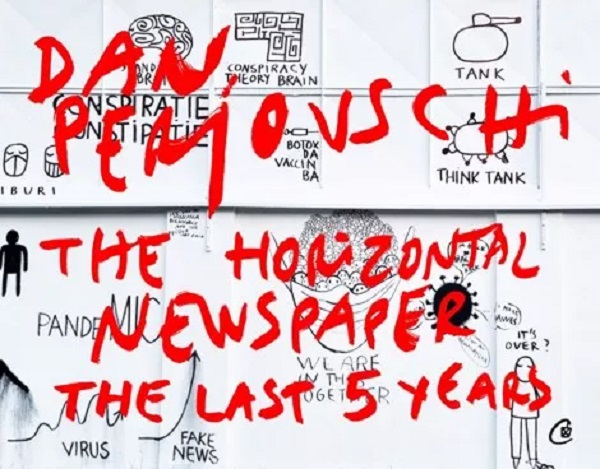 DAN
PERJOVSCHI
THE HORIZONTAL
NEWSPAPER
THE LAST 5 YEARS
CONSPIRACY
THEORY BRAIN
TANK
CONSPIRATIE
CONSTIPATIE
BOTOX
DA
VACCIN
BA
THINK TANK
IBURI
PANDEMIC
WE ARE
IN THIS
TOGETHER
IT'S
OVER?
VIRUS
FAKE
NEWS